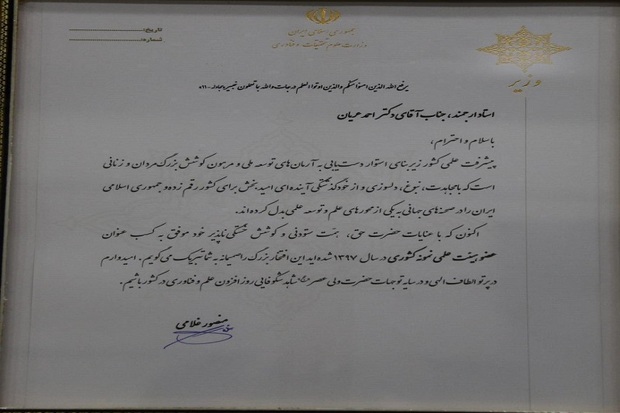 جمهوری اسلامی ایران
وزارت علوم تحقیقات و فناوری
تاریخ:
شماره:
وزیر
یرفع الله الذین امنوا منکم والذین اوتوا العلم درجات والله بما تعملون خبیر مجادله ۱۱۰
استاد ارجمند، جناب آقای دکتر احمد عریان
با سلام و احترام،
پیشرفت علمی کشور زیربنای استوار دست‌یابی به آرمان‌های توسعه ملی و مرهون کوشش بزرگ مردان و زنانی
است که با مجاهدت، نبوغ، دلسوزی و از خودگذشتگی آینده‌ای امیدبخش برای کشور رقم زده و جمهوری اسلامی
ایران را در صحنه‌های جهانی به یکی از محورهای علم و توسعه علمی بدل کرده‌اند.
اکنون که با عنایات حضرت حق، همت ستودنی و کوشش خستگی‌ناپذیر خود موفق به کسب عنوان
عضو هیئت علمی نمونه کشوری در سال ۱۳۹۷ شده‌اید این افتخار بزرگ را صمیمانه به شما تبریک می‌گویم. امیدوارم
در پرتو الطاف الهی و در سایه توجهات حضرت ولی عصر شاهد شکوفایی روزافزون علم و فناوری در کشور باشیم.
منصور غلامی